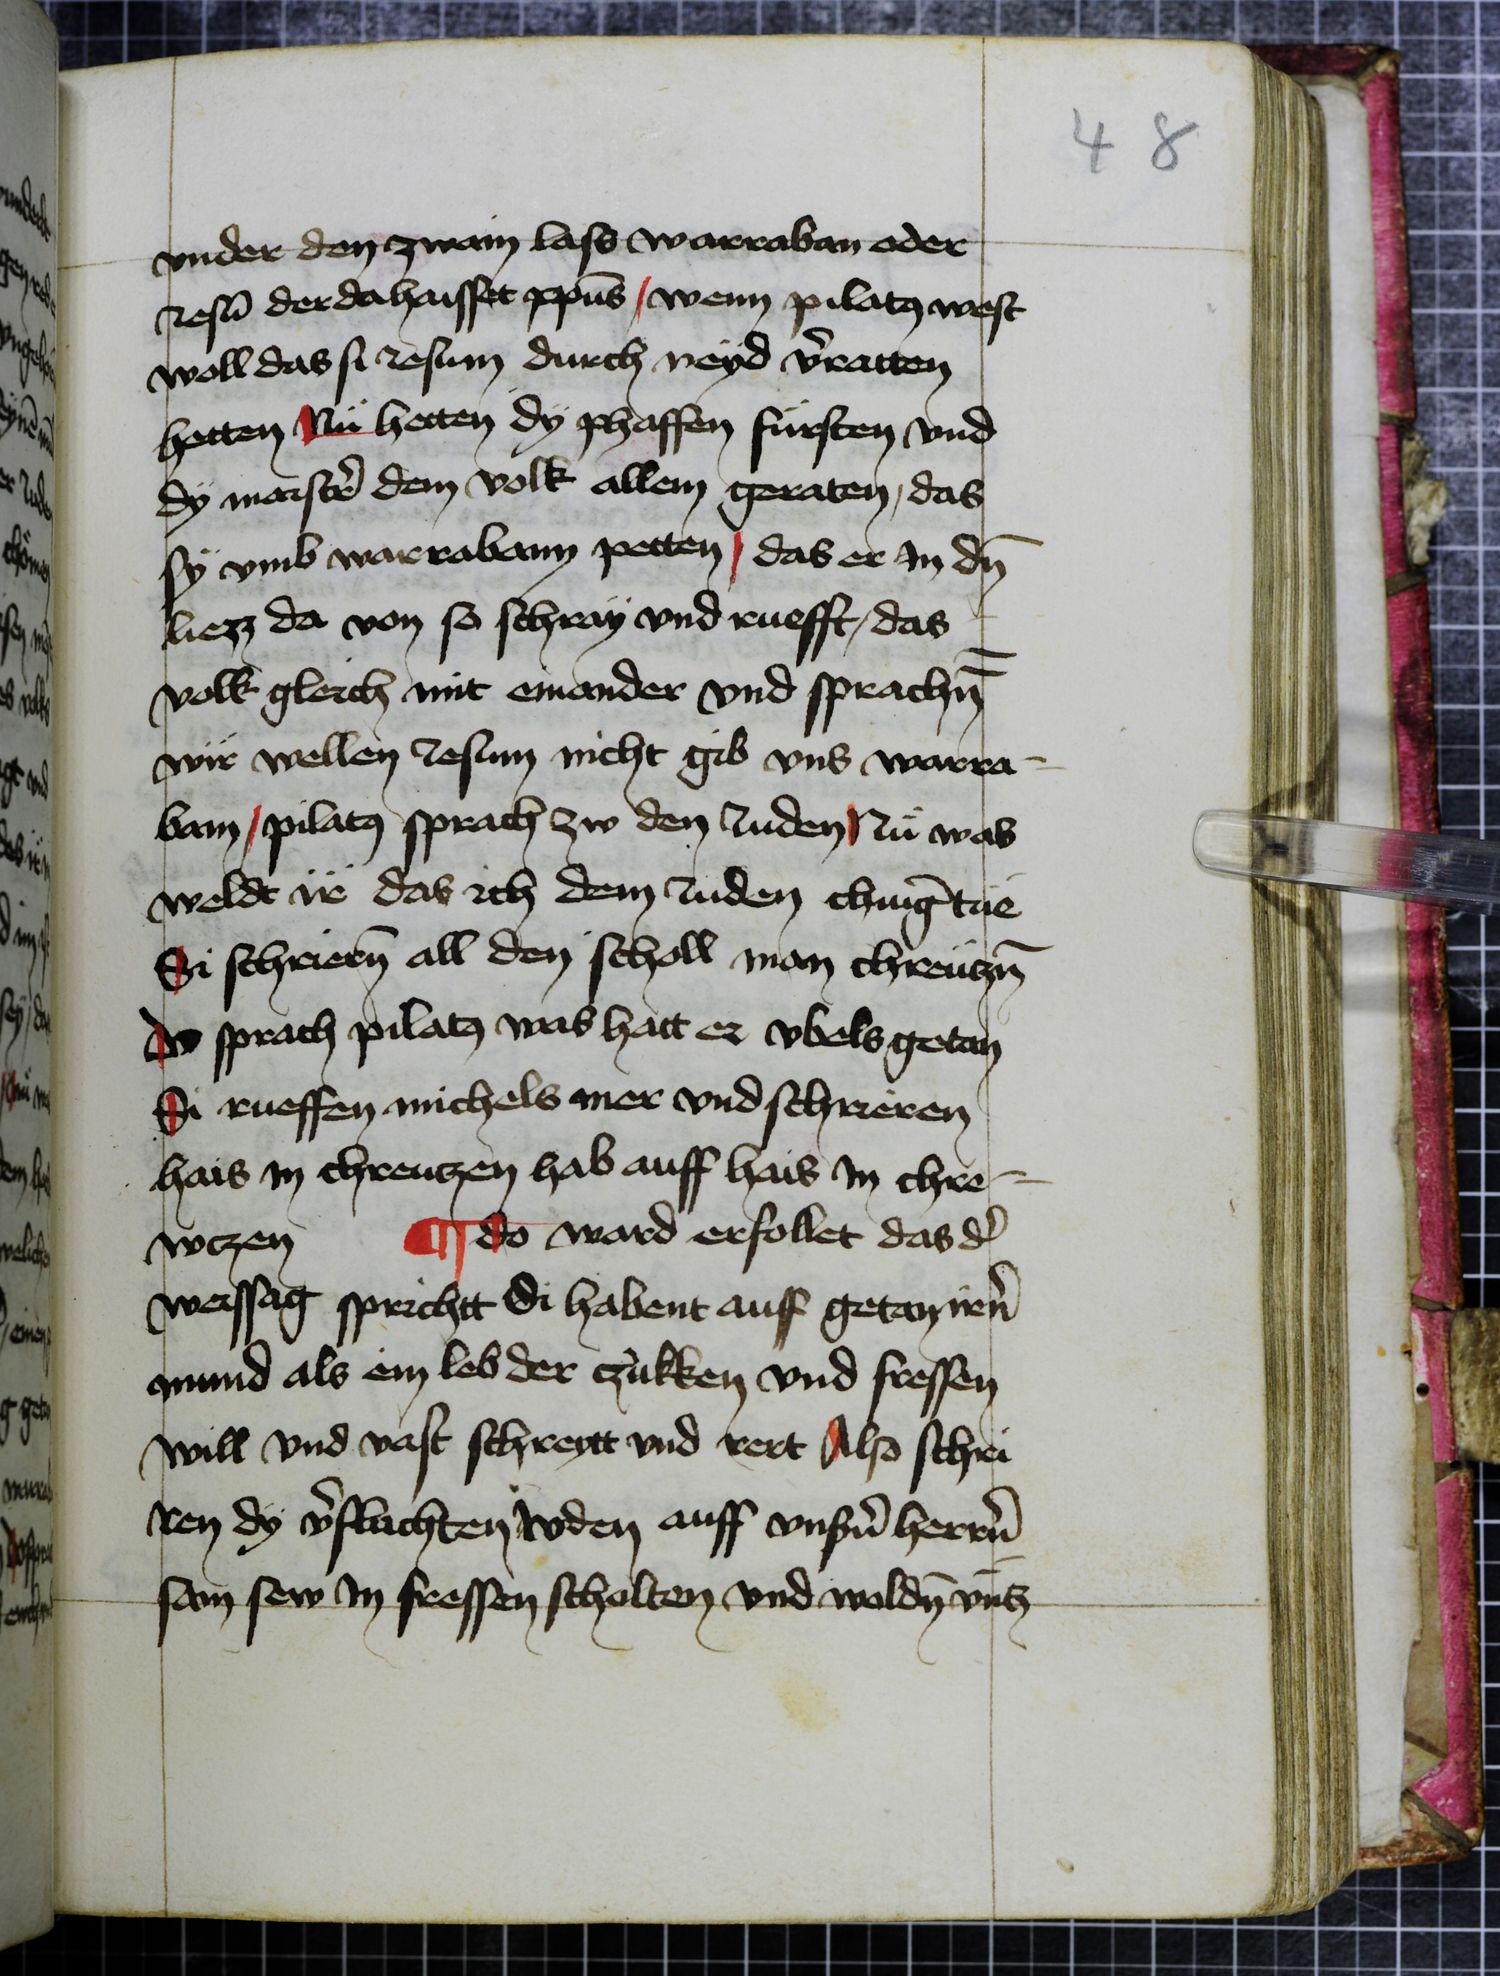 48
vnder den zwain lass warraban oder
Jesū der da haisset xpūs / wenn pilatꝰ west
woll das si Jesum durch neÿd v̾ratten
hetten Nü hetten dÿ phaffen fürsten vnd
dÿ maistr̄ dem volk allem geraten / das
sÿ vmb warrabann petten / das er in dn̄
liezz da von so schraÿ vnd ruefft / das
volk gleich mit einander vnd sprachn̄
wir wellen Jesum nicht gib vns warra-
bam / pilatꝰ sprach zw den Juden Nü was
weldt ir das ich dem Juden chuīg tüe
Si schriern̄ all den scholl man chreützn̄
Do sprach pilatꝰ was hatt er vbels getan
Si rueffen michels mer vnd schrieren
hais in chreutzen hab auff hais in chre-
wczen ¶ do ward erfollet das d̾
weissag sprichtt Di habent auff getan irn̄
mund als ein leb der czukken vnd fressen
will vnd vast schreytt vnd rert Also schri
ren dÿ v̾fluchten Juden auff vnsn̄ herrn̄
sam sew in fressen scholten vnd woldn̄ vntz